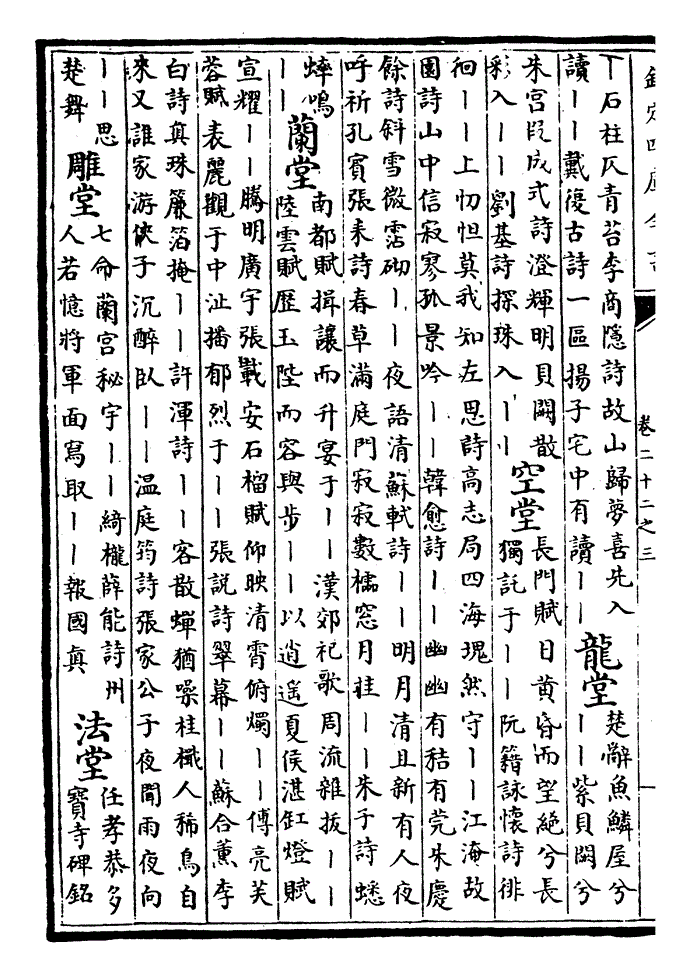 欽定四庫全書 卷二十二之三 一
丨石柱仄青苔李商隱詩故山歸夢喜先入
讀丨丨戴復古詩一區揚子宅中有讀丨丨
龍堂
楚辭魚鱗屋兮
丨丨紫貝闕兮
朱宮段成式詩澄輝明貝闕散
彩入丨丨劉基詩探珠入丨丨
空堂
長門賦日黄昏而望絶兮長
獨託于丨丨阮籍詠懷詩徘
徊丨丨上忉怛莫我知左思詩高志局四海塊然守丨丨江淹故
園詩山中信寂寥孤景吟丨丨韓愈詩丨丨幽幽有秸有莞朱慶
餘詩斜雪微霑砌丨丨夜語清蘇軾詩丨丨明月清且新有人夜
呼祈孔賓張耒詩春草滿庭門寂寂數櫺窓月挂丨丨朱子詩蟋
蟀鳴
丨丨
蘭堂
南都賦揖讓而升宴于丨丨漢郊祀歌周流雜拔丨丨
陸雲賦歴玉陛而容與步丨丨以逍遥夏侯湛缸燈賦
宣耀丨丨騰明廣宇張載安石榴賦仰映清霄俯燭丨丨傅亮芙
蓉賦表麗觀于中沚播郁烈于丨丨張説詩翠幕丨丨蘇合薰李
白詩真珠簾箔掩丨丨許渾詩丨丨客散蟬猶噪桂檝人稀鳥自
來又誰家游俠子沉醉臥丨丨温庭筠詩張家公子夜聞雨夜向
丨丨思
楚舞
雕堂
七命蘭宮秘宇丨丨綺櫳薛能詩州
人若憶將軍面寫取丨丨報國真
法堂
任孝恭多
寶寺碑銘